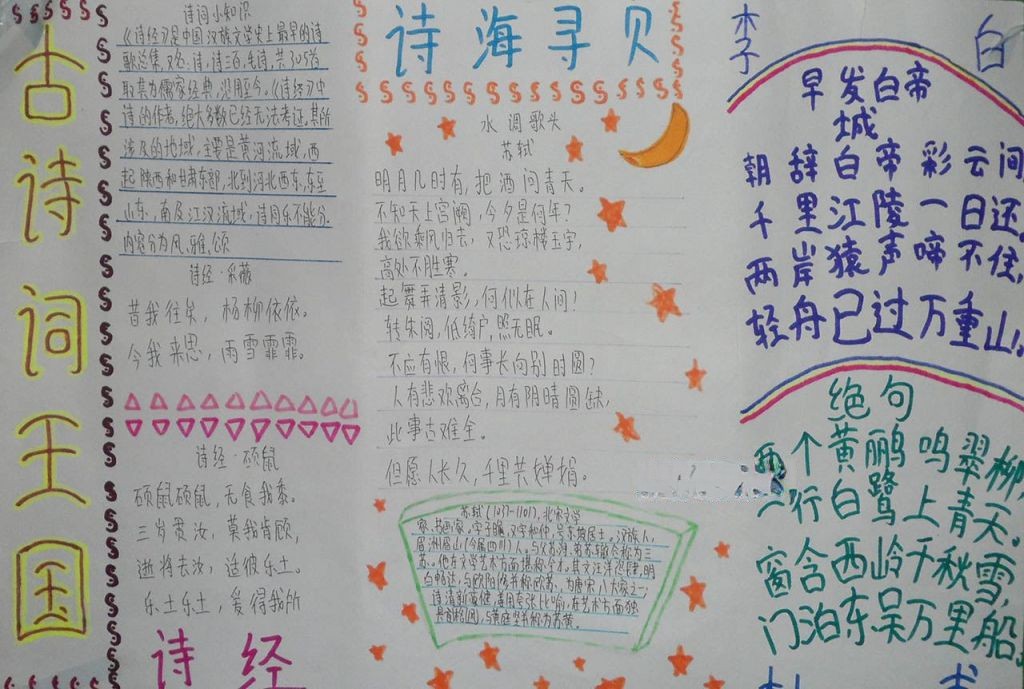 古诗词王国
诗词小知识
《诗经》是中国汉族文学史上最早的诗
歌总集,又名:诗,诗三百,毛诗,共305首
取其为儒家经典,沿用至今。《诗经》中
诗的作者,绝大多数已经无法考证,其所
涉及的地域,主要是黄河流域,西
起陕西和甘肃东部,北到河北西东,东至
山东,南及江汉流域,诗同乐不能分
内容分为风、雅、颂
诗经·采薇
昔我往矣,杨柳依依。
今我来思,雨雪霏霏。
诗经·硕鼠
硕鼠硕鼠,无食我黍。
三岁贯汝,莫我肯顾,
逝将去汝,适彼乐土。
乐土乐土,爰得我所
诗经
诗海寻贝
水调歌头
苏轼
明月几时有,把酒问青天。
不知天上宫阙,今夕是何年?
我欲乘风归去,又恐琼楼玉宇,
高处不胜寒。
起舞弄清影,何似在人间!
转朱阁,低绮户,照无眠。
不应有恨,何事长向别时圆?
人有悲欢离合,月有阴晴圆缺,
此事古难全。
但愿人长久,千里共婵捐。
苏轼(1037-1101),北宋文学
家、书画家。字子瞻,又字和仲,号东坡居士。汉族人,
眉州眉山(今属四川)人。与父苏洵,弟苏辙合称为三
苏。他在文学艺术方面堪称全才。其文汪洋恣肆,明
白畅达,与欧阳修并称欧苏,为唐宋八大家之一;
诗清新豪健,善用夸张比喻,在艺术方面独
具自格风,与黄庭坚并称为苏黄。
李白
早发白帝
城
朝辞白帝彩云间
千里江陵一日还,
两岸猿声啼不住,
轻舟已过万重山。
绝句
两个黄鹂鸣翠柳,
一行白鹭上青天。
窗含西岭千秋雪,
门泊东吴万里船。